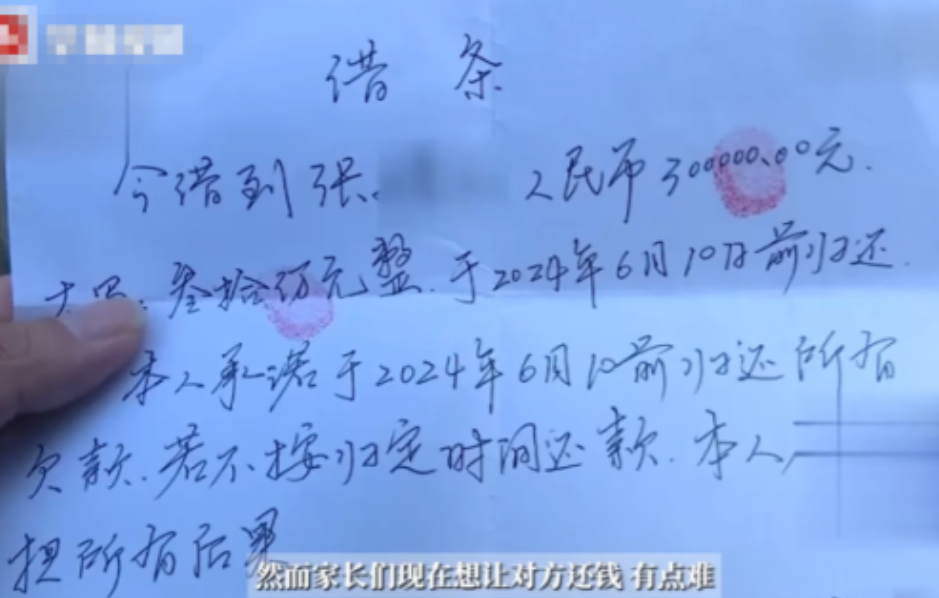 借条
今借到张 人民币300000.00元.
大写:叁拾万元整.于2024年6月10日前归还.
本人承诺于2024年6月10前归还所有
欠款.若不按归定时间还款.本人
担所有后果
然而家长们现在想让对方还钱 有点难